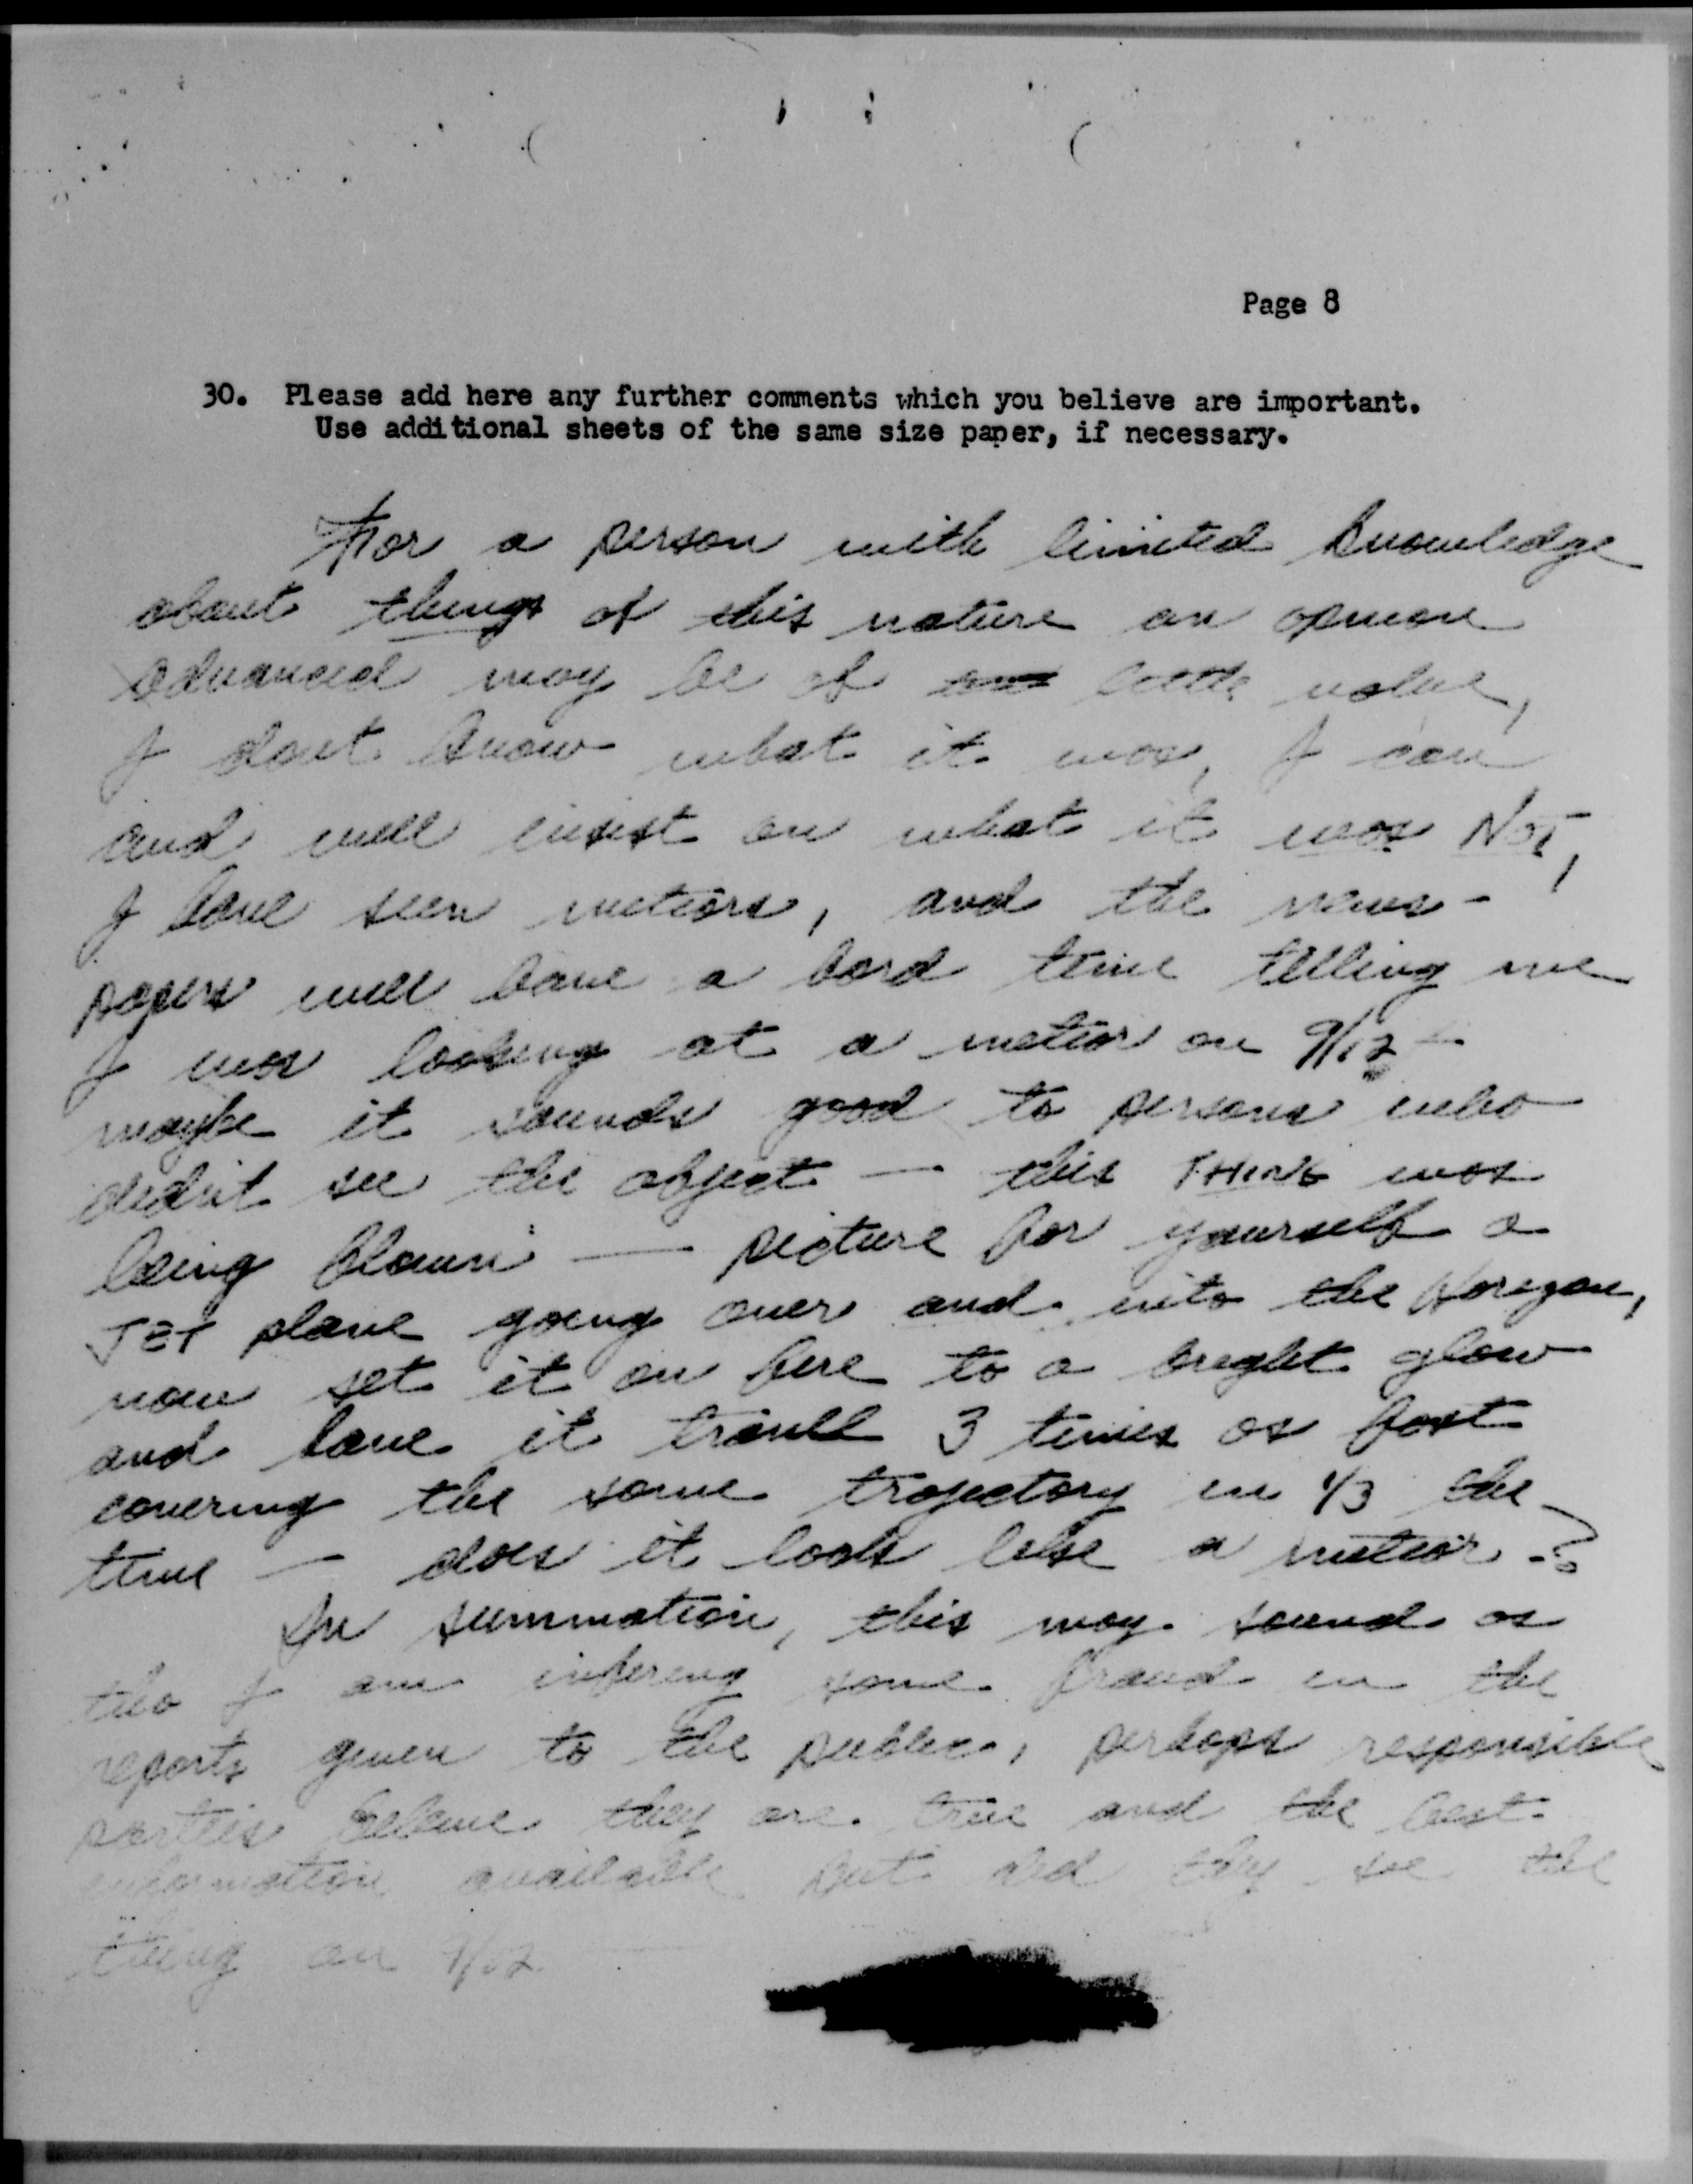 Page 8
30. Please add here any further comments which you believe are important.
Use additional sheets of the same size paper, if necessary.
For a person with limited knowledge
about things of this nature an opinion
advanced may be of little value,
I dont know what it was, I can
and will insist on what it was NOT,
I have seen meteors, and the news-
papers will have a hard time telling me
I was looking at a meteor on 9/12 -
maybe it sounds good to persons who
didn't see the object — this THING was
being flown — picture for yourself a
JET plane going over and into the Horizon,
now set it on fire to a bright glow
and have it travell 3 times as fast
covering the same trajectory in 1/3 the
time — does it look like a meteor - ?
In summation, this may sound as
tho I am infering some fraud in the
reports given to the public, perhaps responsible
parties believe they are true and the best
information available but did they see the
thing on 9/12